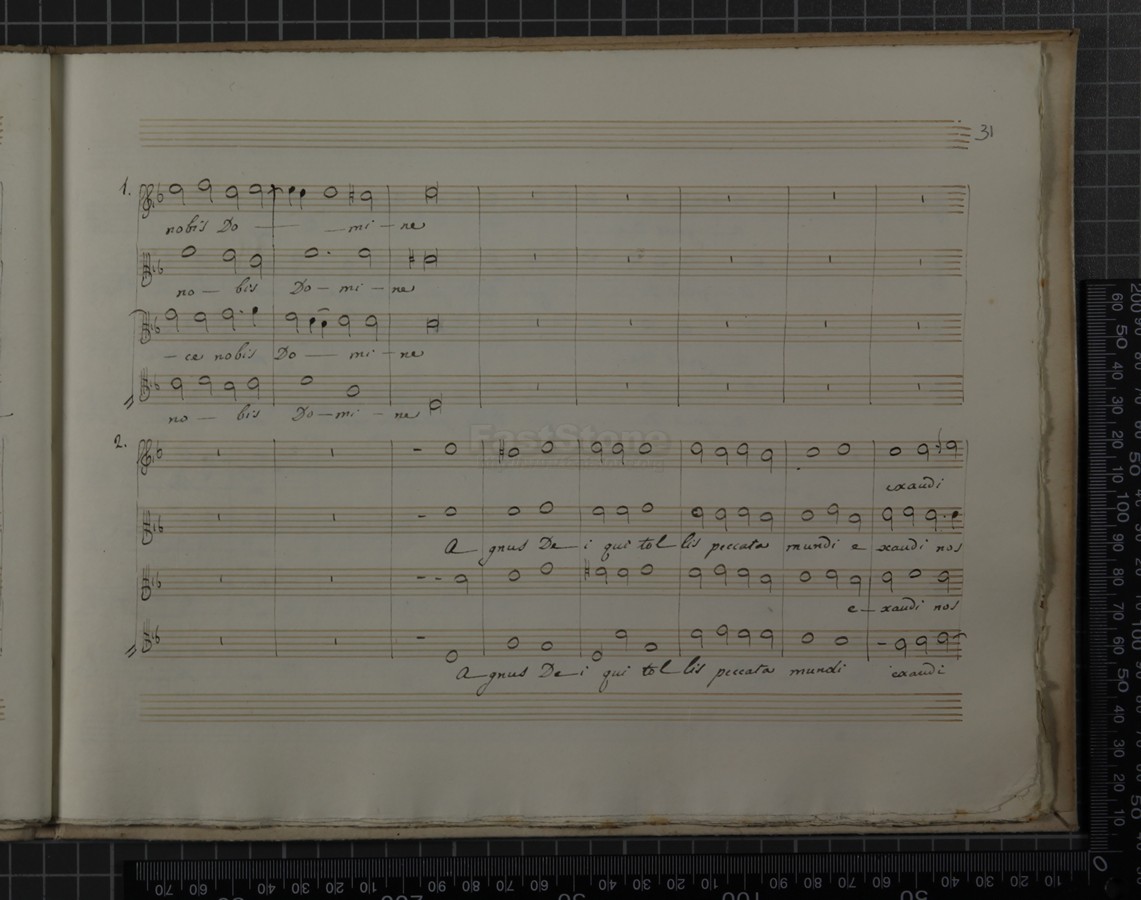 31
1.
nobis Do — — mi — ne
no — bis Do — mi — ne
— ce nobis Do — mi — ne
no — bis Do — mi — ne
FastStone
2.
exaudi
A — gnus De — i qui tol — lis peccata mundi e — xaudi nos
e — xaudi nos
A — gnus De — i qui tol — lis peccata mundi exaudi